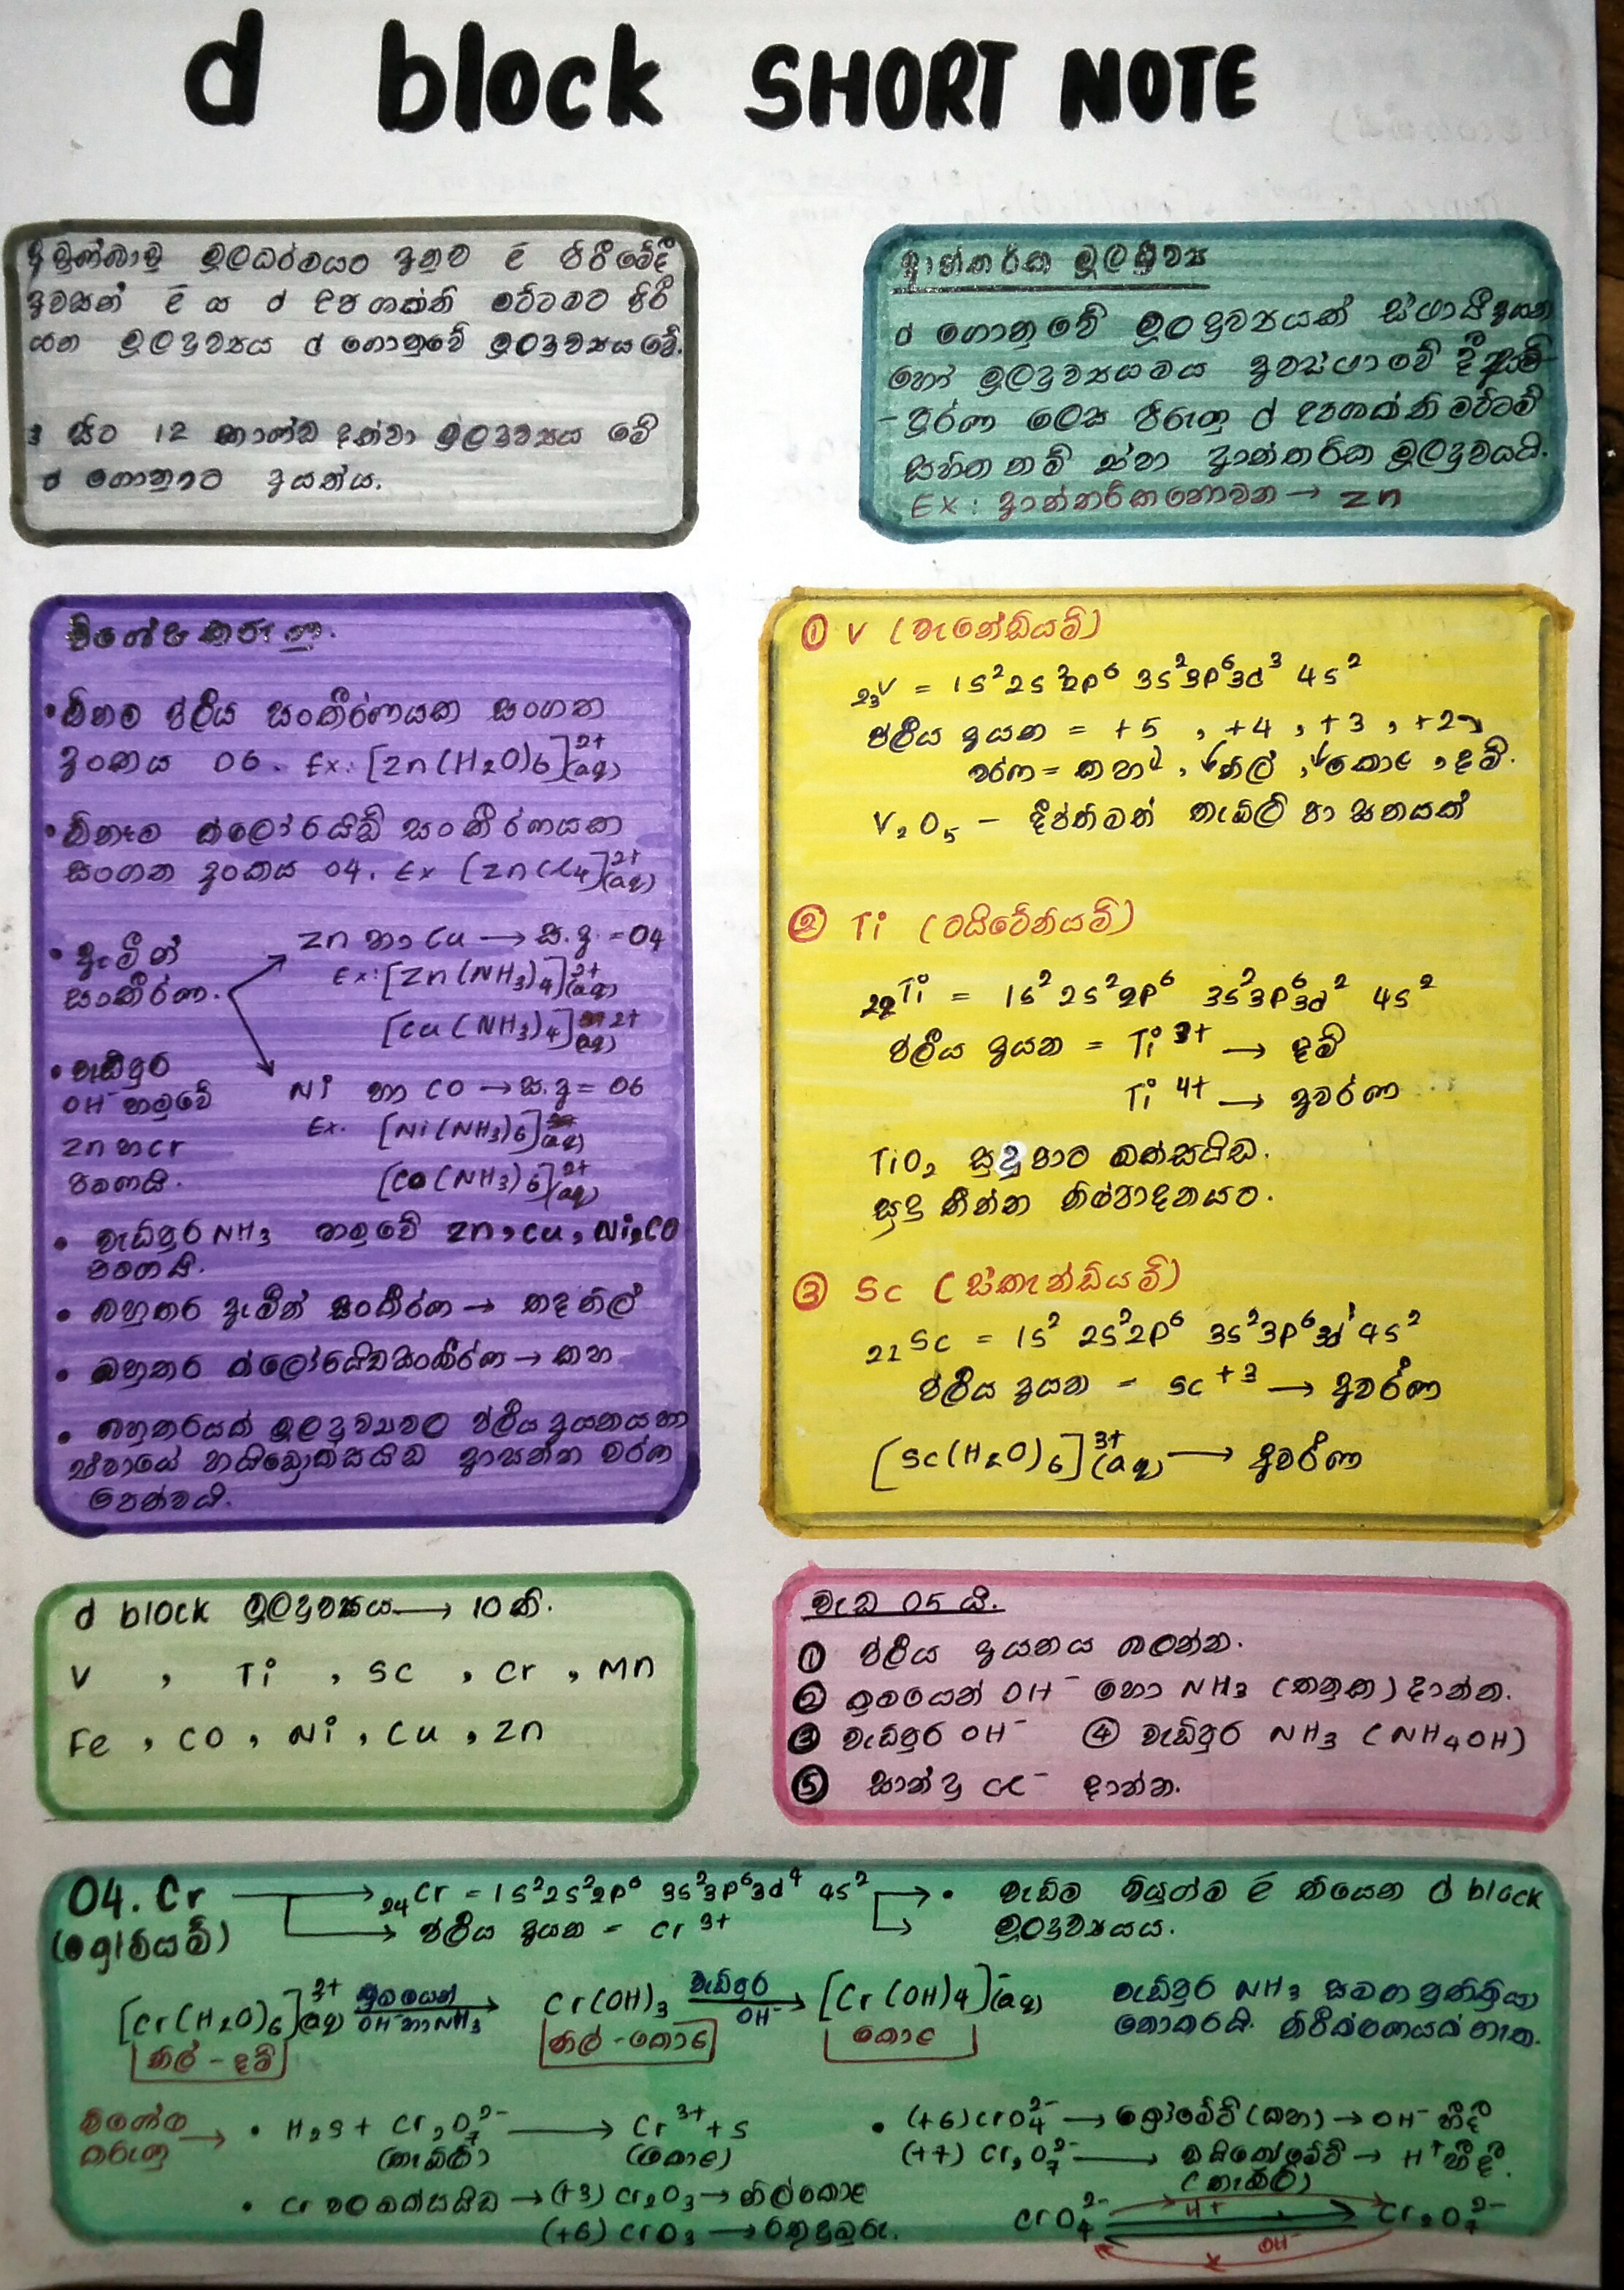 d block SHORT NOTE
අවුෆ්බාවු මූලධර්මයට අනුව ē පිරීමේදී
අවසන් ē ය d උපශක්ති මට්ටමට පිරී
යන මූලද්‍රව්‍යය d ගොනුවේ මූලද්‍රව්‍යය වේ.
3 සිට 12 කාණ්ඩ දක්වා මූලද්‍රව්‍යය මේ
d ගොනුවට අයත්ය.
ආන්තරික මූලද්‍රව්‍ය
d ගොනුවේ මූලද්‍රව්‍යයක් ස්ථායී අයන
හෝ මූලද්‍රව්‍යයමය අවස්ථාවේ දී අසම්
-පූර්ණ ලෙස පිරුනු d උපශක්ති මට්ටම්
සහිත නම් ඒවා ආන්තරික මූලද්‍රව්‍යයි.
Ex: ආන්තරික නොවන → Zn
විශේෂ කරුණු.
• ඕනම ජලීය සංකීර්ණයක සංගත
අංකය 06. Ex: [Zn(H2O)6]²⁺(aq)
• ඕනෑම ක්ලෝරයිඩ් සංකීර්ණයක
සංගත අංකය 04. Ex [ZnCl4]²⁺(aq)
• ඇමීන්
සංකීර්ණ.
Zn හා Cu → ස.අ. = 04
Ex: [Zn(NH3)4]²⁺(aq)
[Cu(NH3)4]²⁺(aq)
Ni හා CO → ස.අ = 06
Ex. [Ni(NH3)6](aq)
[Co(NH3)6]²⁺(aq)
• වැඩිපුර
OH⁻ හමුවේ
Zn හ Cr
පමණයි.
• වැඩිපුර NH3 හමුවේ Zn, Cu, Ni, CO
පමණයි.
• බහුතර ඇමීන් සංකීර්ණ → තද නිල්
• බහුතර ක්ලෝරයිඩ සංකීර්ණ → කහ
• බහුතරයක් මූලද්‍රව්‍යවල ජලීය අයනය හා
ඒවායේ හයිඩ්‍රොක්සයිඩ ආසන්න වර්ණ
පෙන්වයි.
① V (වැනේඩියම්)
₂₃V = 1s² 2s² 2p⁶ 3s² 3p⁶ 3d³ 4s²
ජලීය අයන = +5 , +4 , +3 , +2
වර්ණ = කහ , නිල් , කොළ , දම්.
V2O5 - දීප්තිමත් තැඹිලි පා ඝනයක්
② Ti (ටයිටේනියම්)
₂₂Ti = 1s² 2s² 2p⁶ 3s² 3p⁶ 3d² 4s²
ජලීය අයන = Ti³⁺ → දම්
Ti⁴⁺ → අවර්ණ
TiO2 සුදු පාට ඔක්සයිඩ.
සුදු තීන්ත නිෂ්පාදනයට.
③ Sc (ස්කැන්ඩියම්)
₂₁Sc = 1s² 2s² 2p⁶ 3s² 3p⁶ 3d¹ 4s²
ජලීය අයන = Sc⁺³ → අවර්ණ
[Sc(H2O)6]³⁺(aq) → අවර්ණ
d block මූලද්‍රව්‍යය → 10 නි.
V , Ti , Sc , Cr , Mn
Fe , CO , Ni , Cu , Zn
වැඩ 05 යි.
① ජලීය අයනය බලන්න.
② ක්‍රමයෙන් OH⁻ හෝ NH3 (තනුක) දාන්න.
③ වැඩිපුර OH⁻ ④ වැඩිපුර NH3 (NH4OH)
⑤ සාන්ද්‍ර Cl⁻ දාන්න.
04. Cr
(ක්‍රෝමියම්)
₂₄Cr = 1s² 2s² 2p⁶ 3s² 3p⁶ 3d⁴ 4s²
ජලීය අයන = Cr³⁺
• වැඩිම වියුග්ම ē තියෙන d block
මූලද්‍රව්‍යයය.
[Cr(H2O)6]³⁺(aq) ක්‍රමයෙන් OH⁻ හා NH3 → Cr(OH)3 වැඩිපුර OH⁻ → [Cr(OH)4]⁻(aq)
නිල් - දම් නිල් - කොළ කොළ
වැඩිපුර NH3 සමඟ ප්‍රතික්‍රියා
නොකරයි. නිරීක්ෂණයක් නැත.
විශේෂ
කරුණු → • H2S + Cr2O7²⁻ → Cr³⁺ + S
(තැඹිලි) (කොළ)
• Cr වල ඔක්සයිඩ → (+3) Cr2O3 → නිල් කොළ
(+6) CrO3 → රතු දුඹුරු.
• (+6) CrO4²⁻ → ක්‍රෝමේට් (කහ) → OH⁻ හීදී
(+7) Cr2O7²⁻ → ඩයික්‍රෝමේට් → H⁺ හීදී.
(තැඹිලි)
CrO4²⁻ H⁺ ⇌ OH⁻ Cr2O7²⁻